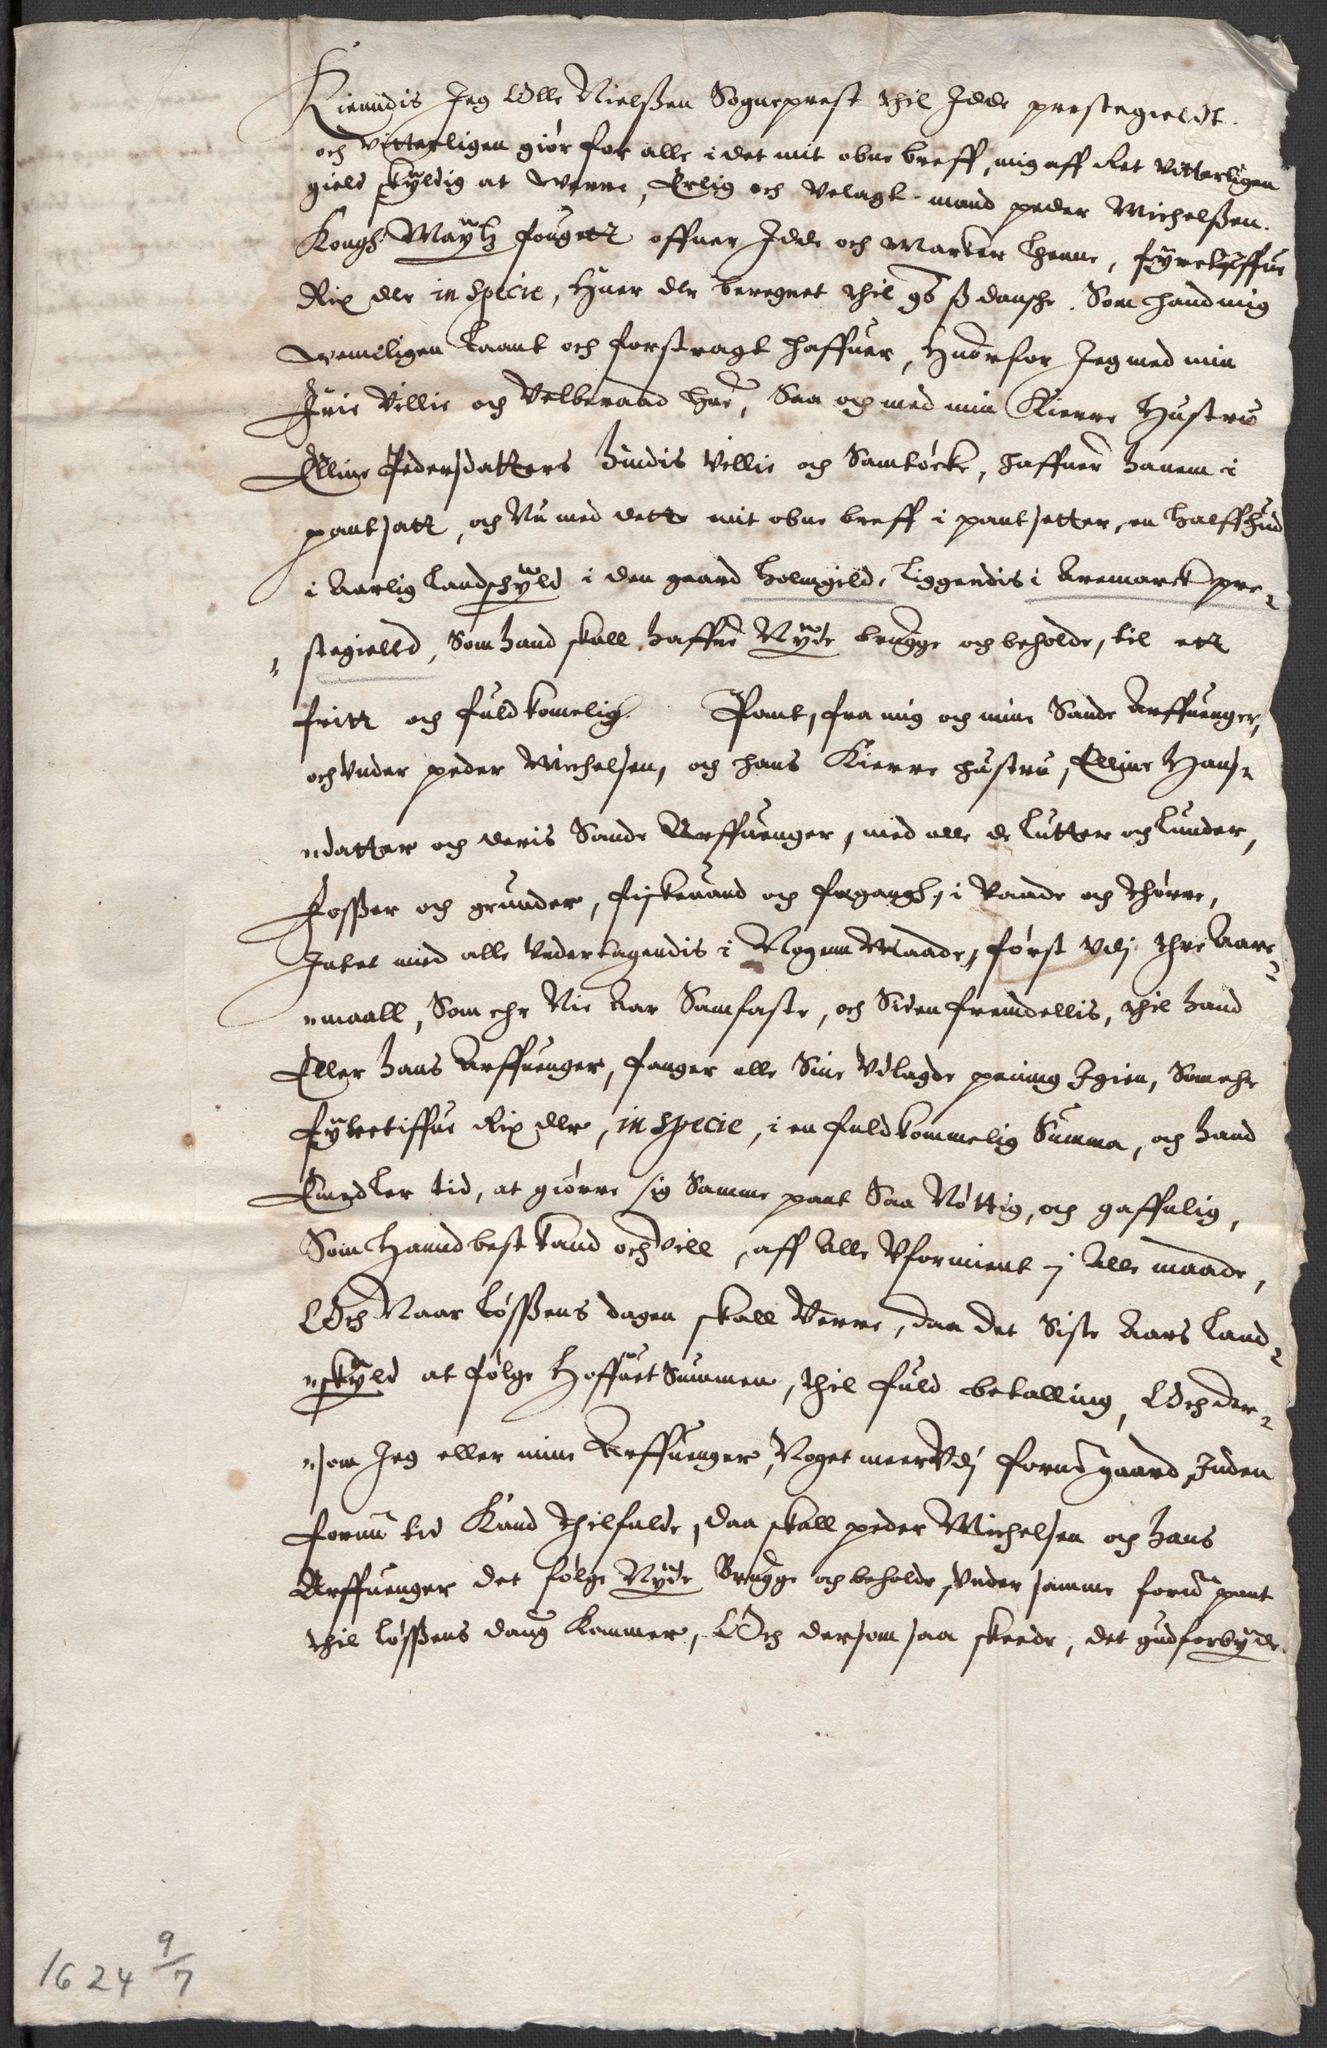 Kiendis Jeg Olle Nielßen Sogneprest thil Jdde prestegieldt.
och vitterligen giør for alle i det mit obne breff, mig aff Ret vitterligen
gield skyldig at werre, Erlig och velagt mand peder Michelßen.
Kongh: Maytz fougett offuer Jdde och Marker lhenne, fyretiffue
Rix dlr in specie, Huer dlr beregnet thil 96 ß dansche. Som hand mig
wenniligen laant och forstragt haffuer, Huorfor Jeg med min
Frie villie och velberaad Hue, Saa och med min Kierre Hustru
Elline Pedersdatters hindis villie och Samtøcke, haffuer hanem i
pantsatt, och Nu med dette mit obne breff i pantsetter, en halff hud
i Aarlig landschyld i den gaard Holmgild, liggendis i Aremarck pre-
stegielld, Som hand skall haffue Nyde brugge och beholde, til ett
fritt och fuldkomelig Pant, fra mig och mine Sande Arffuenger,
och vnder peder Michelsen, och hans Kierre hustru, Elline Hans-
datter och deris Sande Arffuenger, med alle de lutter och lunder,
Foßer och grunder, fiskevand och fegangh, i vaade och thørre,
Jntet med alle vndertagendis i Nogenn Maade, først vdj thre Aare-
maall, Som ehr Nie Aar Samfaste, och Siden fremdellis, thil hand
Eller hans Arffuenger, fanger alle Sine vdlagde pening Jgien, Som ehr
fyretiffue Rix dlr, in specie, i en fuldkommelig Summa, och hand
Emedler tid, at giørre sig Samme pant Saa Nøttig, och gaffnlig,
Som Hannd best kand och vill, aff Alle vformient i Alle maade,
Och Naar løßens dagen skall Verre, daa det Siste Aars Land-
skyld at følge Hoffuet Summen, thil fuld betalling, Och der-
som Jeg eller mine Arffuenger, Noget meer vdj fornd gaard, Inden
fornd tid Kand thilfalde, daa skall peder Michelsen och hans
Arffuenger det følge Nyde Brugge och beholde, vnder samme fornd pant
thil løßens daug Kommer, Och dersom saa skeede, det gud forbyde
1624 9/7